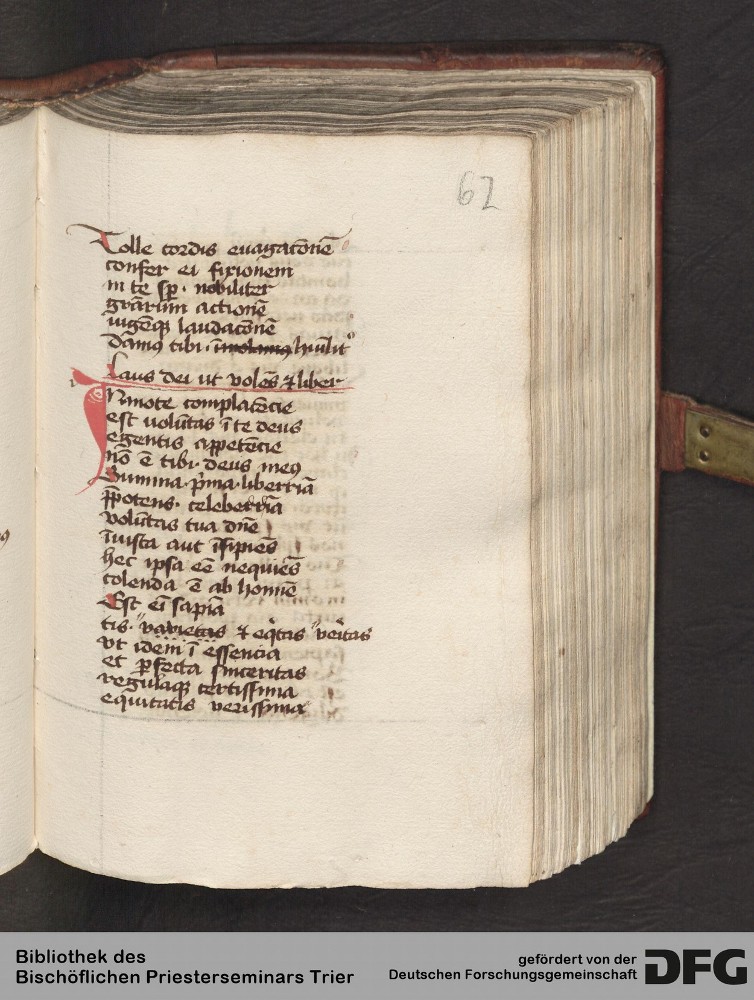 62
Tolle cordis euagac̄onē
confer ei fixionem
in te sp̄. nobiliter
grārum actionē
iugēqȝ laudac̄onē
damꝰ tibi. hūīlit᷑
Laus dei ut volēs ⁊ liber
Inmote complacēcie
est uolūtas ī te deus
egentis appetēcie
nō ē tibi. deus meꝰ
Summa. p̄ma. libert̄īā
p̄potens. celeberr̄īā
volūtas tua dn̄e
īiusta aut īsipiēs
hec ipsa eē nequiēs
colenda ē ab homīē
Est eī sapīā
tis. varietas ⁊ eq̄tas veritas
vt idem ī essencia
et ꝑfecta sinceritas
regulaqȝ certissima
equitatis verissima
Bibliothek des
Bischöflichen Priesterseminars Trier
gefördert von der
Deutschen Forschungsgemeinschaft
DFG